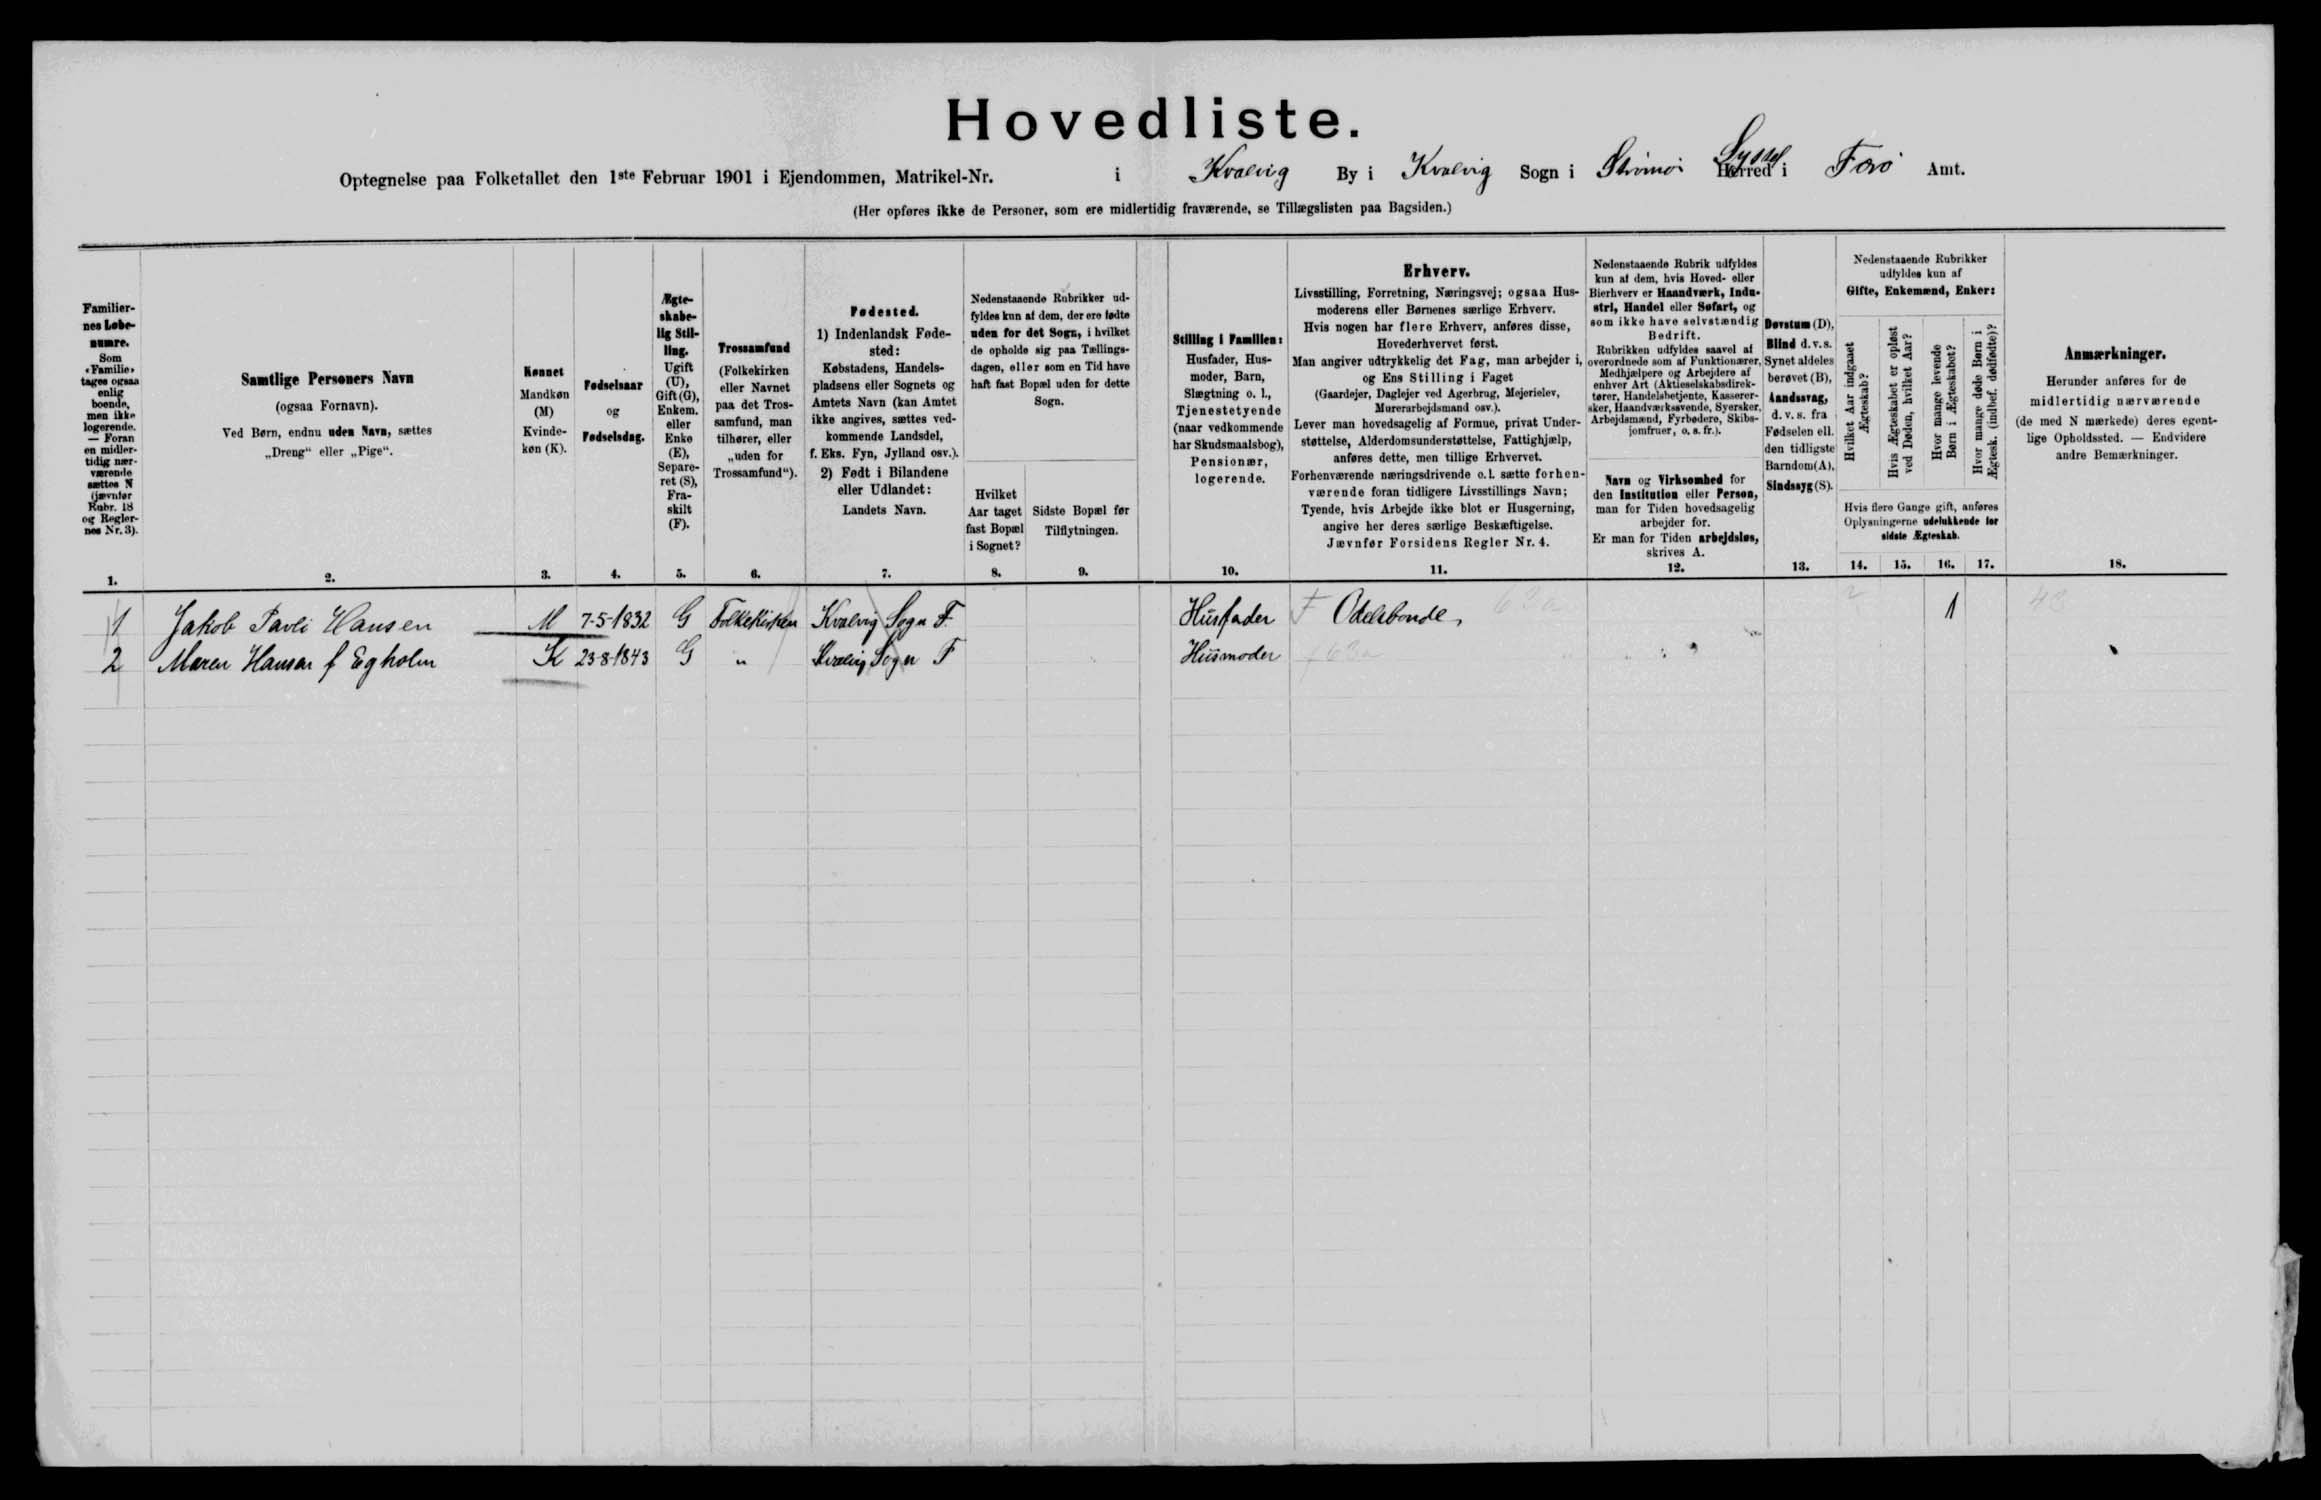 Hovedliste.
Optegnelse paa Folketallet den 1ste Februar 1901 i Ejendommen, Matrikel-Nr. i Kvalvig By i Kvalvig Sogn i Strømø Syssel Herred i Færø Amt.
(Her opføres ikke de Personer, som ere midlertidig fraværende, se Tillægslisten paa Bagsiden.)
Familier-
nes Løbe-
numre.
Som
«Familie»
tages ogsaa
enlig
boende,
men ikke
logerende.
— Foran
en midler-
tidig nær-
værende
sættes N
(jævnfør
Rubr. 18
og Regler-
nes Nr. 3).
1.
Samtlige Personers Navn
(ogsaa Fornavn).
Ved Børn, endnu uden Navn, sættes
„Dreng“ eller „Pige“.
2.
Kønnet
Mandkøn
(M)
Kvinde-
køn (K).
3.
Fødselsaar
og
Fødselsdag.
4.
Ægte-
skabe-
lig Stil-
ling.
Ugift
(U),
Gift (G),
Enkem.
eller
Enke
(E),
Separe-
ret (S),
Fra-
skilt
(F).
5.
Trossamfund
(Folkekirken
eller Navnet
paa det Tros-
samfund, man
tilhører, eller
„uden for
Trossamfund“).
6.
Fødested.
1) Indenlandsk Føde-
sted:
Købstadens, Handels-
pladsens eller Sognets og
Amtets Navn (kan Amtet
ikke angives, sættes ved-
kommende Landsdel,
f. Eks. Fyn, Jylland osv.).
2) Født i Bilandene
eller Udlandet:
Landets Navn.
7.
Nedenstaaende Rubrikker ud-
fyldes kun af dem, der ere fødte
uden for det Sogn, i hvilket
de opholde sig paa Tællings-
dagen, eller som en Tid have
haft fast Bopæl uden for dette
Sogn.
Hvilket
Aar taget
fast Bopæl
i Sognet?
8.
Sidste Bopæl før
Tilflytningen.
9.
Stilling i Familien:
Husfader, Hus-
moder, Barn,
Slægtning o. l.,
Tjenestetyende
(naar vedkommende
har Skudsmaalsbog),
Pensionær,
logerende.
10.
Erhverv.
Livsstilling, Forretning, Næringsvej; ogsaa Hus-
moderens eller Børnenes særlige Erhverv.
Hvis nogen har flere Erhverv, anføres disse,
Hovederhvervet først.
Man angiver udtrykkelig det Fag, man arbejder i,
og Ens Stilling i Faget
(Gaardejer, Daglejer ved Agerbrug, Mejerielev,
Murerarbejdsmand osv.).
Lever man hovedsagelig af Formue, privat Under-
støttelse, Alderdomsunderstøttelse, Fattighjælp,
anføres dette, men tillige Erhvervet.
Forhenværende næringsdrivende o. l. sætte forhen-
værende foran tidligere Livsstillings Navn;
Tyende, hvis Arbejde ikke blot er Husgerning,
angive her deres særlige Beskæftigelse.
Jævnfør Forsidens Regler Nr. 4.
11.
Nedenstaaende Rubrik udfyldes
kun af dem, hvis Hoved- eller
Bierhverv er Haandværk, Indu-
stri, Handel eller Søfart, og
som ikke have selvstændig
Bedrift.
Rubrikken udfyldes saavel af
overordnede som af Funktionærer,
Medhjælpere og Arbejdere af
enhver Art (Aktieselskabsdirek-
tører, Handelsbetjente, Kasserer-
sker, Haandværkssvende, Syersker,
Arbejdsmænd, Fyrbødere, Skibs-
jomfruer, o. s. fr.).
Navn og Virksomhed for
den Institution eller Person,
man for Tiden hovedsagelig
arbejder for.
Er man for Tiden arbejdsløs,
skrives A.
12.
Døvstum (D),
Blind d. v. s.
Synet aldeles
berøvet (B),
Aandssvag,
d. v. s. fra
Fødselen ell.
den tidligste
Barndom(A),
Sindssyg (S).
13.
Nedenstaaende Rubrikker
udfyldes kun af
Gifte, Enkemænd, Enker:
Hvilket Aar indgaaet
Ægteskab?
Hvis Ægteskabet er opløst
ved Døden, hvilket Aar?
Hvor mange levende
Børn i Ægteskabet?
Hvor mange døde Børn i
Ægtesk. (indbef. dødfødte)?
Hvis flere Gange gift, anføres
Oplysningerne udelukkende for
sidste Ægteskab.
14. 15. 16. 17.
Anmærkninger.
Herunder anføres for de
midlertidig nærværende
(de med N mærkede) deres egent-
lige Opholdssted. — Endvidere
andre Bemærkninger.
18.
1 Jakob Pavli Hansen M 7-5-1832 G Folkekirken Kvalvig Sogn F Husfader F Odelsbonde, 63a 1
2 Maren Hansen f Egholm K 23-8-1843 G „ Kvalvig Sogn F Husmoder f 63a